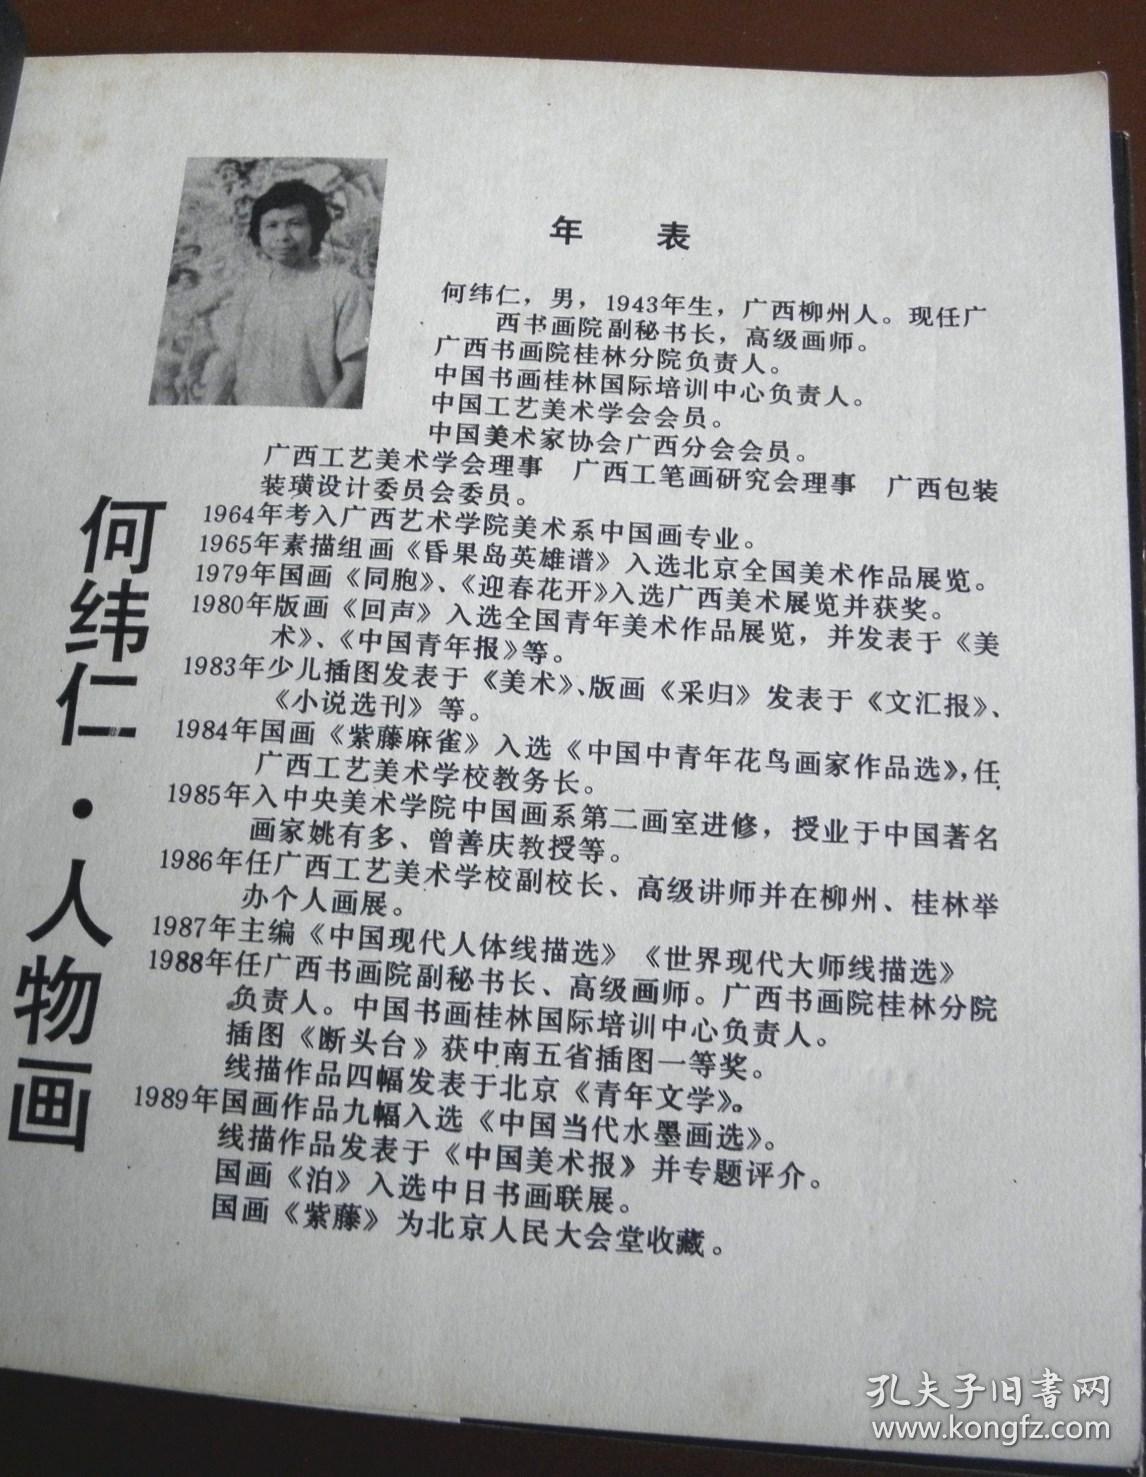 年 表
何纬仁，男，1943年生，广西柳州人。现任广
西书画院副秘书长，高级画师。
广西书画院桂林分院负责人。
中国书画桂林国际培训中心负责人。
中国工艺美术学会会员。
中国美术家协会广西分会会员。
广西工艺美术学会理事 广西工笔画研究会理事 广西包装
装璜设计委员会委员。
1964年考入广西艺术学院美术系中国画专业。
1965年素描组画《昏果岛英雄谱》入选北京全国美术作品展览。
1979年国画《同胞》、《迎春花开》入选广西美术展览并获奖。
1980年版画《回声》入选全国青年美术作品展览，并发表于《美
术》、《中国青年报》等。
1983年少儿插图发表于《美术》、版画《采归》发表于《文汇报》、
《小说选刊》等。
1984年国画《紫藤麻雀》入选《中国中青年花鸟画家作品选》，任
广西工艺美术学校教务长。
1985年入中央美术学院中国画系第二画室进修，授业于中国著名
画家姚有多、曾善庆教授等。
1986年任广西工艺美术学校副校长、高级讲师并在柳州、桂林举
办个人画展。
1987年主编《中国现代人体线描选》《世界现代大师线描选》
1988年任广西书画院副秘书长、高级画师。广西书画院桂林分院
负责人。中国书画桂林国际培训中心负责人。
插图《断头台》获中南五省插图一等奖。
线描作品四幅发表于北京《青年文学》。
1989年国画作品九幅入选《中国当代水墨画选》。
线描作品发表于《中国美术报》并专题评介。
国画《泊》入选中日书画联展。
国画《紫藤》为北京人民大会堂收藏。
何纬仁·人物画
孔夫子旧书网
www.kongfz.com